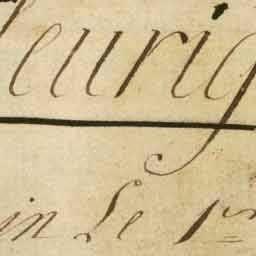 leurig
in Le 1er